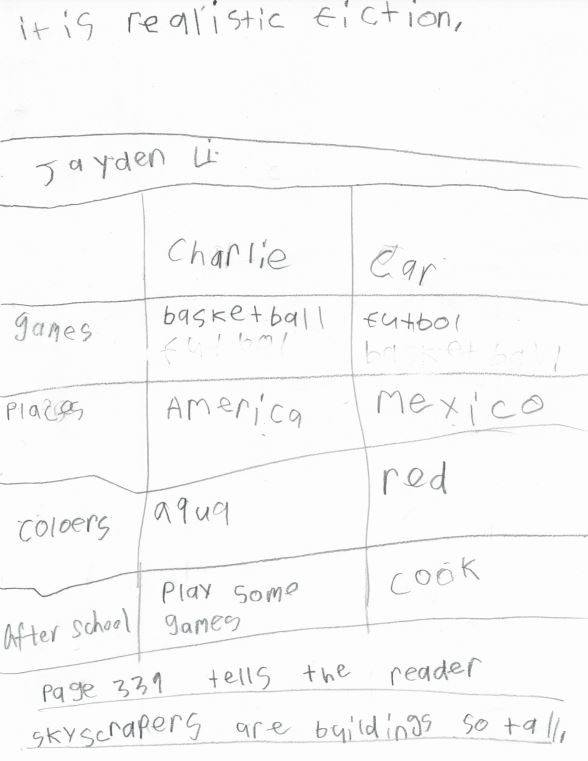 it is realistic fiction,
Jayden Li
Charlie Car
games basketball futbol
futbol basketball
Places America Mexico
coloers aqua red
After school Play some games cook
Page 339 tells the reader
skyscrapers are buildings so tall,